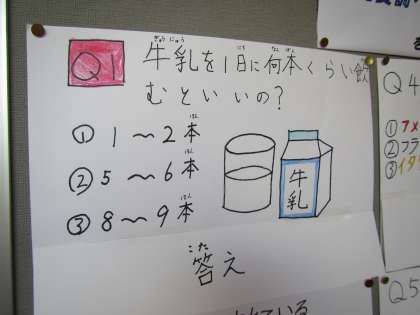 Q1
牛乳を1日に何本くらい飲
むといいの?
① 1〜2本
② 5〜6本
③ 8〜9本
牛乳
答え
Q4
①アメ
②フラ
③イタ
Q5